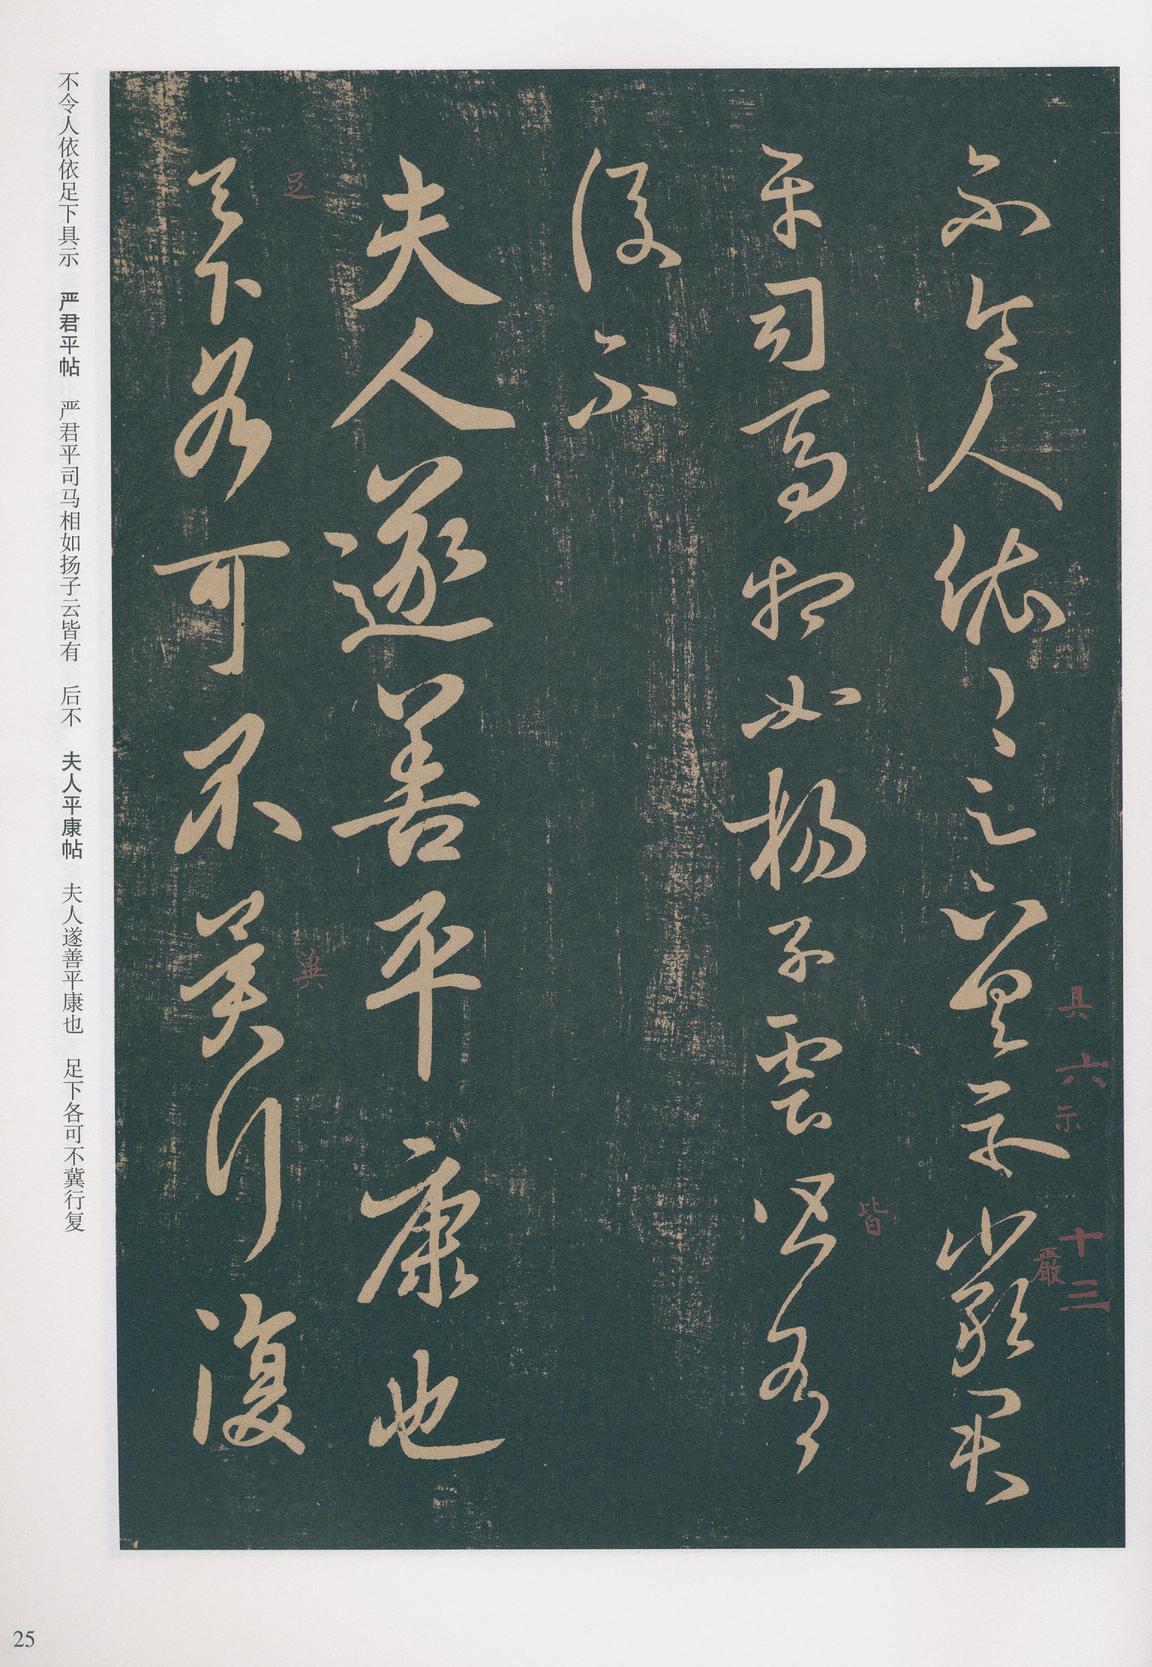 不令人依〻足下具示嚴君
平司馬相如楊子雲皆有
後不
夫人遂善平康也
足下各可不冀行復
具
六
示
十三
嚴
皆
足
冀
不令人依依足下具示　严君平帖　严君平司马相如扬子云皆有　后不　夫人平康帖　夫人遂善平康也　足下各可不冀行复
25